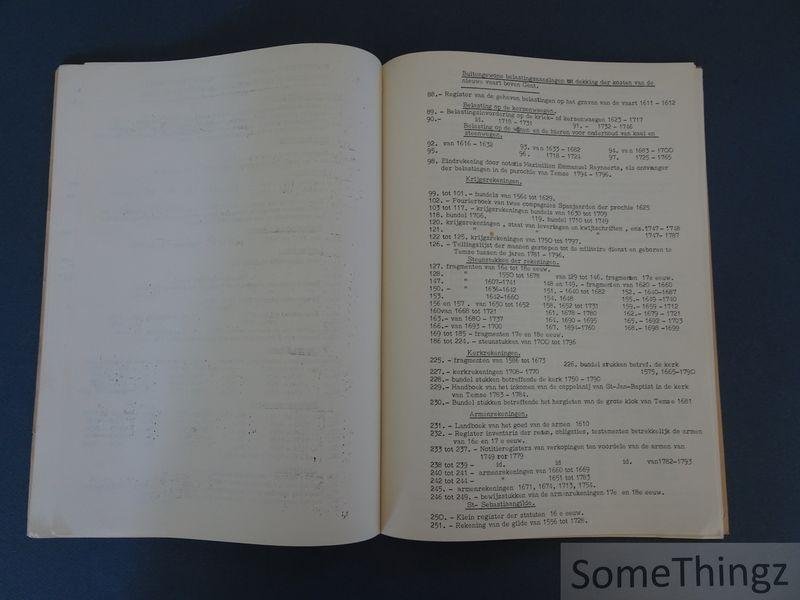 Buitengewone belastingsaanslagen tot dekking der kosten van de
nieuwe vaart boven Gent.
88.- Register van de geheven belastingen op het graven van de vaart 1611 - 1612
Belasting op de kerzenwegen.
89. - Belastingsinvordering op de kriek- of kerzenwegen 1623 - 1717
90.- id. 1718 - 1731 91. - 1732 - 1746
Belasting op de wijnen en de bieren voor onderhoud van kaai en
steenwegen.
92. van 1616 - 1632 93. van 1633 - 1682 94. van 1683 - 1700
95. 96. 1718 - 1724 97. 1725 - 1765
98. Eindrekening door notaris Maximilien Emmanuel Reynaerts, als ontvanger
der belastingen in de parochie van Temse 1794 - 1796.
Krijgsrekeningen.
99. tot 101.- bundels van 1564 tot 1629.
102. - Fourierboek van twee compagnies Spanjaarden der prochie 1625
103 tot 117. - krijgsrekeningen bundels van 1630 tot 1709
118. bundel 1706. 119. bundel 1710 tot 1749
120. krijgsrekeningen , staat van leveringen en kwijtschriften , enz. 1747 - 1748
121. " " " 1747 - 1787
122 tot 125. krijgsrekeningen van 1750 tot 1797.
126. - Tellingslijst der mannen geroepen tot de militaire dienst en geboren te
Temse tussen de jaren 1781 - 1796.
Steunstukken der rekeningen.
127. fragmenten van 16e tot 18e eeuw.
128. " 1550 tot 1678 van 129 tot 146. fragmenten 17e eeuw.
147. " 1607-1741 148 en 149. - fragmenten van 1620 - 1660
150. - " 1636-1642 151. - 1640 tot 1682 152. - 1640-1687
153. 1642-1660 154. 1648 155.- 1649 -1740
156 en 157. van 1650 tot 1652 158. 1652 tot 1731 159.- 1659 - 1712
160 van 1668 tot 1721 161. 1678 - 1780 162.- 1679 - 1721
163.- van 1680 - 1737 164. 1690 - 1695 165. -1692 - 1703
166.- van 1693 - 1700 167. 1694-1760 168.- 1698 -1699
169 tot 185 - fragmenten 17e en 18e eeuw.
186 tot 224. - steunstukken van 1700 tot 1796
Kerkrekeningen.
225. - fragmenten van 1586 tot 1673 226. bundel stukken betref. de kerk
227.- kerkrekeningen 1708- 1770 1575, 1665-1790
228.- bundel stukken betreffende de kerk 1750 - 1790
229.- Handboek van het inkomen van de cappelanij van St-Jan-Baptist in de kerk
van Temse 1783 - 1784.
230.- Bundel stukken betreffende het hergieten van de grote klok van Temse 1681
Armenrekeningen.
231. - Landboek van het goed van de armen 1610
232. - Register inventaris der renten, obligaties, testamenten betrekkelijk de armen
van 16e en 17 e eeuw.
233 tot 237. - Notitieregisters van verkopingen ten voordele van de armen van
1749 tot 1779
238 tot 239 - id. id. id. van 1782-1793
240 tot 241 - armenrekeningen van 1660 tot 1669
242 tot 244 - " 1651 tot 1783
245. - armenrekeningen 1671, 1674, 1713, 1754.
246 tot 249. - bewijsstukken van de armenrekeningen 17e en 18e eeuw.
St- Sebastiaangilde.
250. - Klein register der statuten 16 e eeuw.
251. - Rekening van de gilde van 1556 tot 1728.
SomeThingz